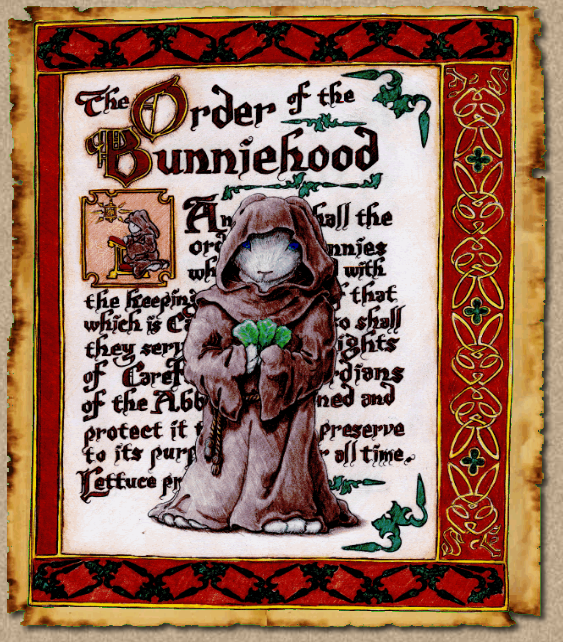 The Order of the
Bunniehood
An hall the
ord nnies
wh with
the keeping f that
which is Ca o shall
they serv ights
of Caref rdians
of the Abb ned and
protect it preserve
to its purp r all time.
Lettuce pr